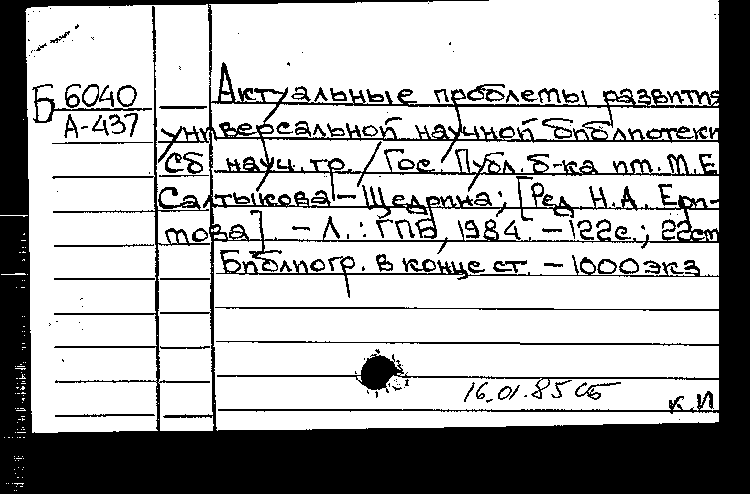 Б 6040
А-437
Актуальные проблемы развития
универсальной научной библиотеки
Сб науч. тр. / Гос. Публ. б-ка им. М.Е
Салтыкова-Щедрина; [Ред. Н.А. Ерм-
това]. - Л.: ГПБ, 1984. - 122с.; 22см
Библиогр. в конце ст. - 1000экз
16.01.85
к.И